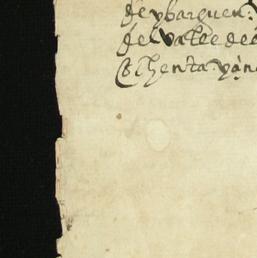 de ybarguen
del valle de
ochenta y an